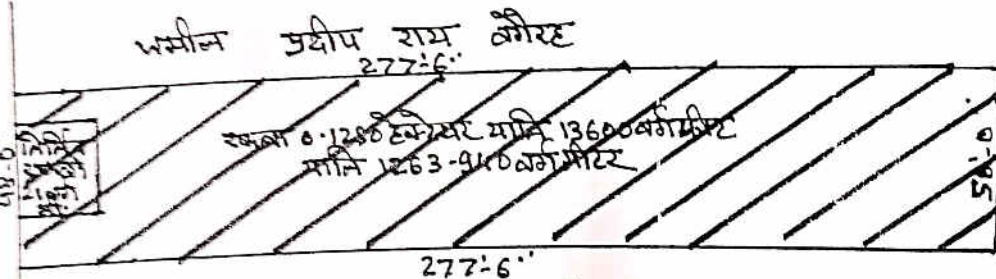 जमीन प्रदीप राय वगैरह
277'-6"
रकबा 0.1280 हेक्टेयर यानि 13600 वर्गफीट
यानि 1263-940 वर्गमीटर
48-0
50-0
277'-6"